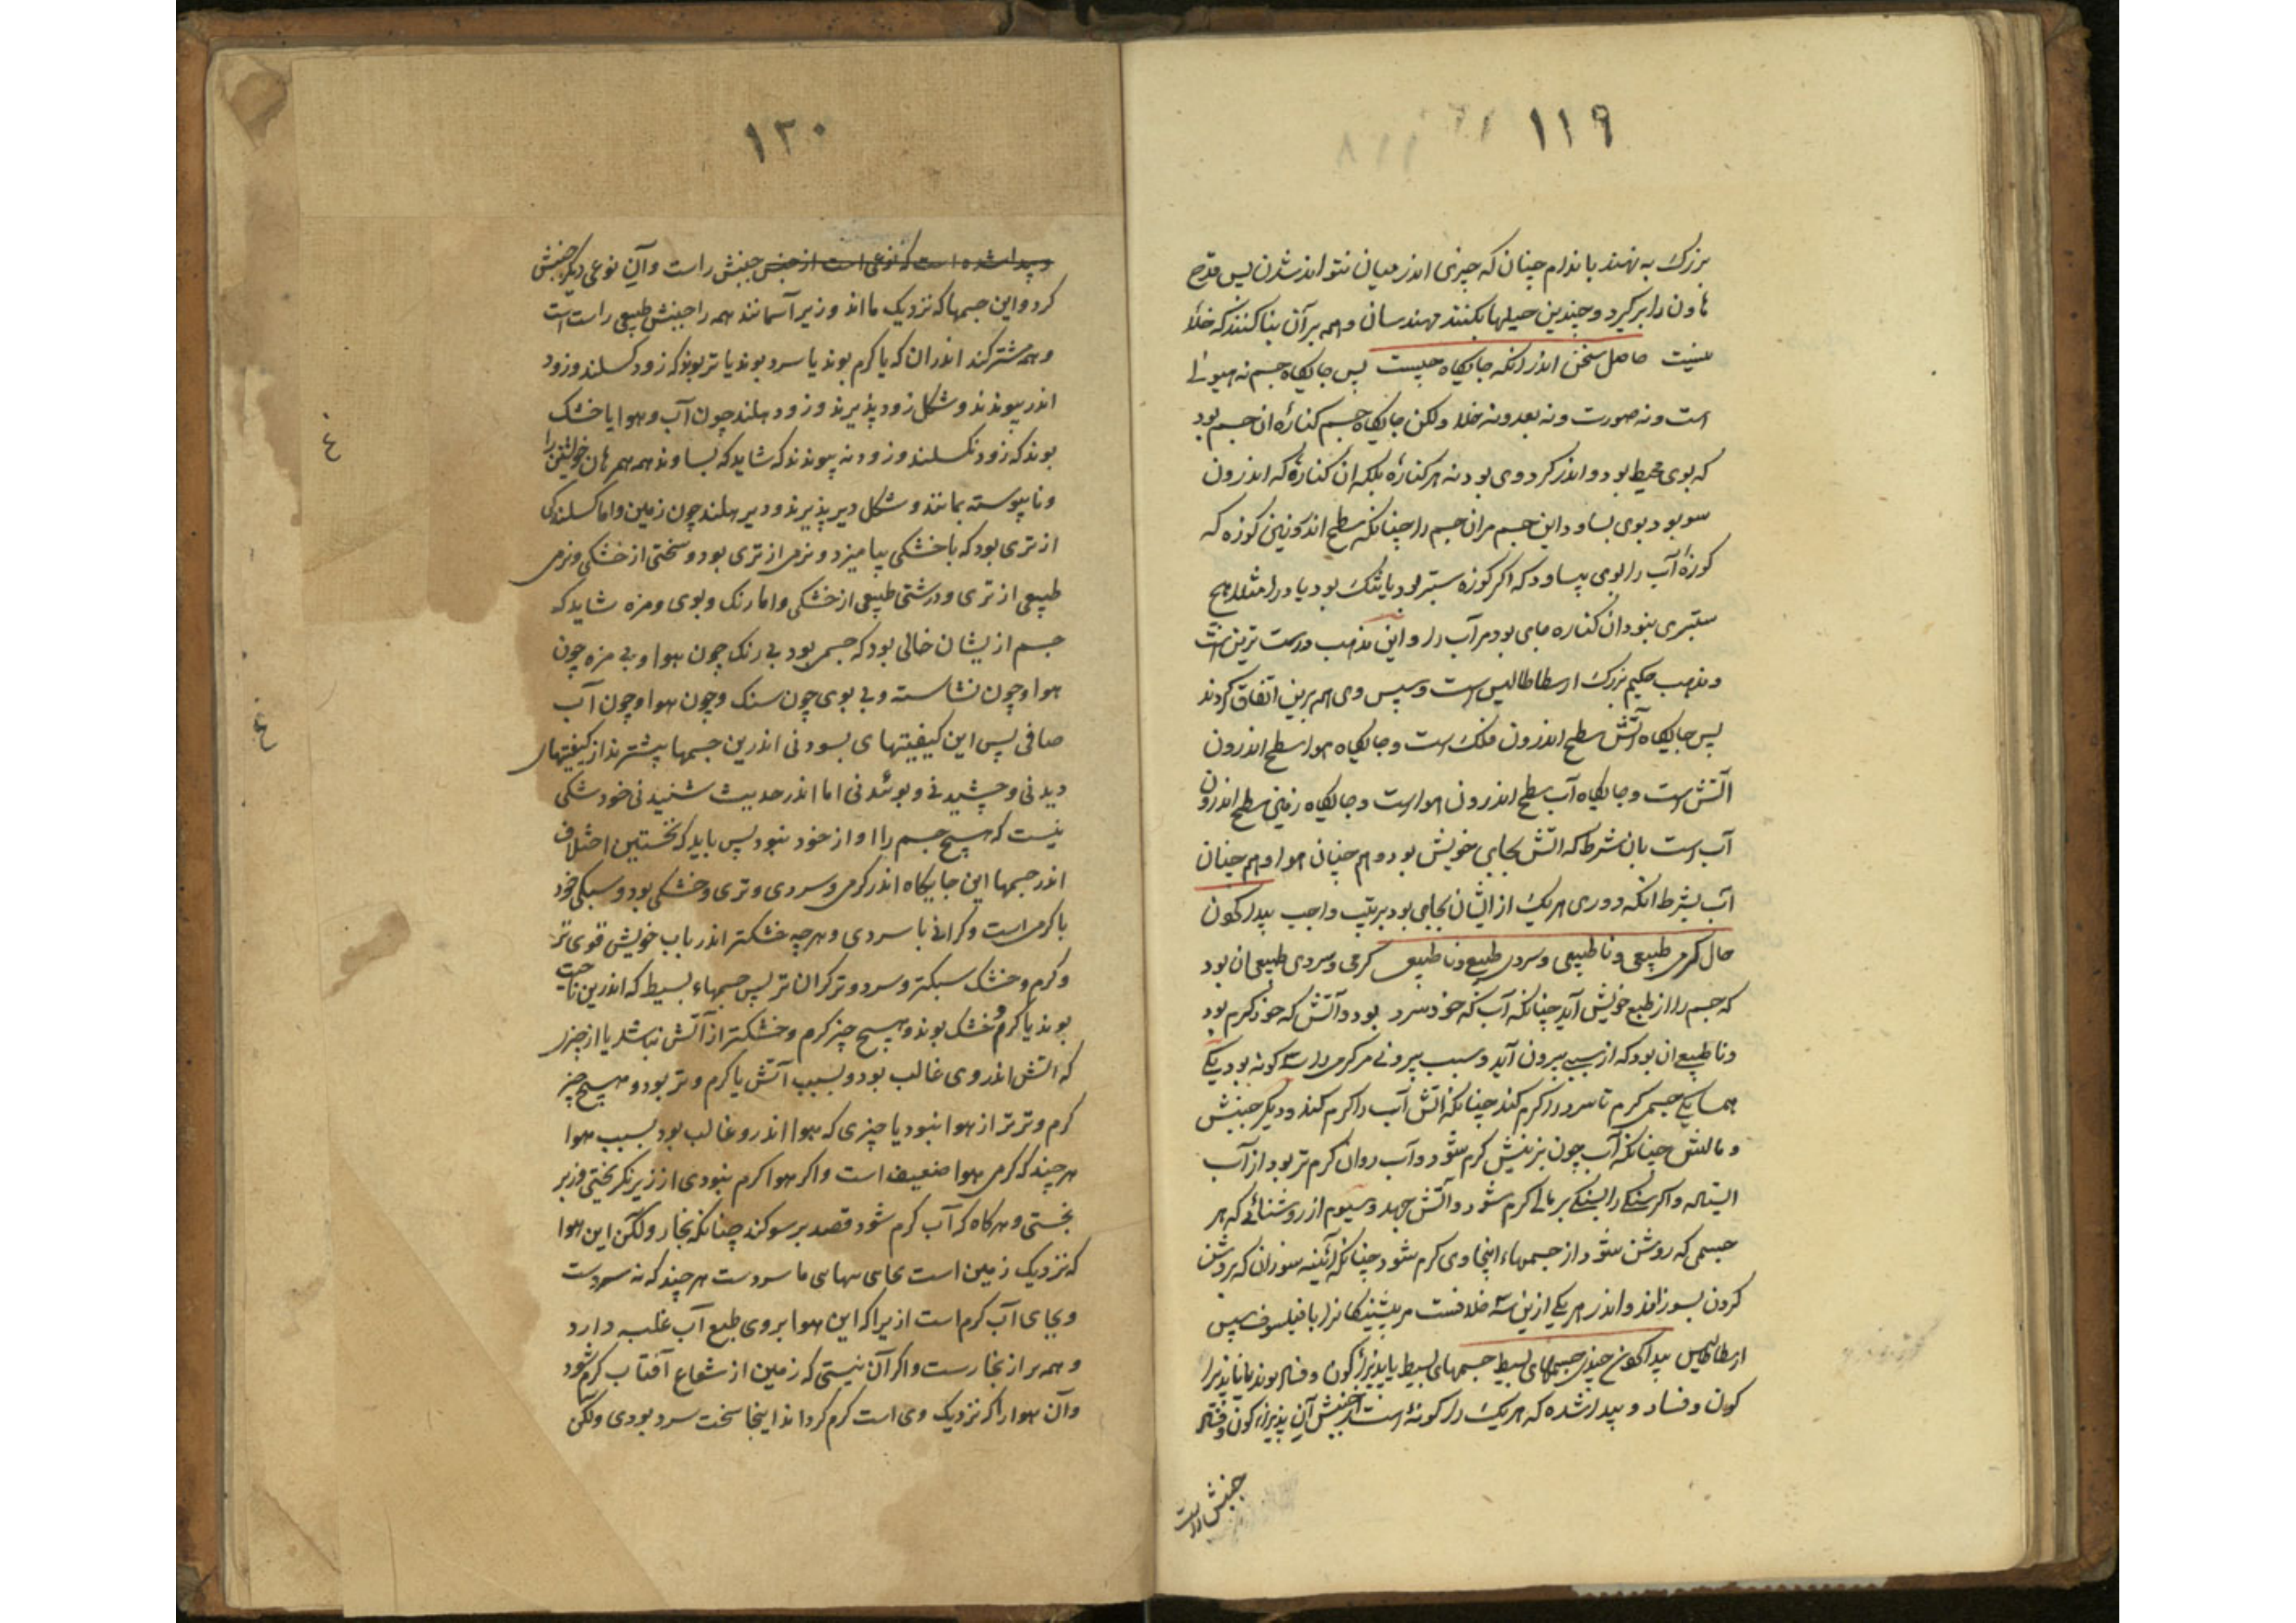 ١١٩
بزرک به نهند باندام چنان که چیزی اندر میان نتواند شدن پس قدح
هاون را برگیرد و چندین حیلها بکنند مهندسان و همه بر آن بنا کنند که خلأ
نیست حاصل سخن اندر آنکه جایکاه چیست پس جایکاه جسم نه هیولی
است و نه صورت و نه بعد و نه خلا ولکن جایکاه جسم کناره ان جسم بود
که بوی محیط بود و اندر کرد وی بود نه هر کناره بلکه ان کناره که اندرون
سو بود بوی بساود این جسم مران جسم را چنانکه سطح اندرونین کوزه که
کوزه آب را بوی بپساود که اکر کوزه ستبر بود یا تنک بود یا در امثلا هیچ
ستبری نبود ان کناره جای بود مر آب را و این مذهب درست ترین است
و مذهب حکیم بزرک ارسطاطالیس است و سپس وی همه برین اتفاق کردند
پس جایکاه آتش سطح اندرون فلک است و جایکاه هوا سطح اندرون
آتش است و جایکاه آب سطح اندرون هوا است و جایکاه زمین سطح اندرون
آب است بان شرط که آتش بجای خویش بود و هم چنان هوا و هم چنان
آب بشرط آنکه دوری هر یک از ایشان بجای بود بترتیب واجب پیدا کون
حال کرمی طبیعی و ناطبیعی و سردی طبیعی و ناطبیعی کرمی و سردی طبیعی ان بود
که جسم را از طبع خویش آید چنانکه آب که خود سرد بود و آتش که خود کرم بود
و ناطبیعی ان بود که از سببی بیرون آید و سبب بیرونی مر کرمی را سه کونه بود یکی
همسایکی جسمی کرم تا سرد را کرم کند چنانکه آتش آب را کرم کند و دیکر جنبش
و مالش چنانکه آب چون بزنیش کرم شود و آب روان کرم تر بود از آب
ایستاده و اکر سنکی را بسنکی بر مالی کرم شود و آتش جهد و سیوم از روشنائی که هر
جسمی که روشن شود از جسمهاء اینجا وی کرم شود چنانکه آئینه سوزان که بروشن
کردن بسوزاند و اندر هر یکی ازین سه خلافست مر پیشینکانرا با فیلسوف سپس
ارسطاطالیس پیدا کون چندی جسمهای بسیط جسمهای بسیط یا پذیرا کون و فساد بوند یا ناپذیرا
کون و فساد و پیدا شده که هر یک را کونهٔ است از جنبش آن پذیرا کون و فساد
جنبش راست
١٢٠
و پیدا شده است که نوعی است از جنس جنبش راست و آن نوعی دیکر جنبش
کرد و این جسمها که نزدیک ما اند و زیر آسمانند همه را جنبش طبیعی راست است
و همه مشترکند اندران که یا کرم بوند یا سرد بوند یا تر بوند که زود کسلند و زود
اندر پیوندند و شکل زود پذیرند و زود هلند چون آب و هوا یا خشک
بوند که زود نکسلند و زود نه پیوندند که شاید که بساوند همه مر هان خویشتن را
و ناپیوسته بمانند و شکل دیر پذیرند و دیر هلند چون زمین و اما کسلندکی
از تری بود که با خشکی بیامیزد و نرمی از تری بود و سختی از خشکی و نرمی
طبیعی از تری و درشتی طبیعی از خشکی و اما رنک و بوی و مزه شاید که
جسم ازیشان خالی بود که جسمی بود بی رنک چون هوا و بی مزه چون
هوا و چون نشاسته و بی بوی چون سنک و چون هوا و چون آب
صافی پس این کیفیتهای بسودنی اندرین جسمها پیشترند از کیفیتهای
دیدنی و چشیدنی و بوئیدنی اما اندر حدیث شنیدنی خود شکی
نیست که هیچ جسم را او از خود نبود پس باید که نخستین اختلاف
اندر جسمها این جایکاه اندر کرمی و سردی و تری و خشکی بود و سبکی خود
با کرمی است و کرانی با سردی و هرچه خشکتر اندر باب خویش قوی تر
و کرم و خشک سبکتر و سرد و تر کران تر پس جسمهاء بسیط که اندرین ناحیت
بوند یا کرم و خشک بوند و هیچ چیز کرم و خشکتر از آتش نباشد یا از چیزی
که اتش اندروی غالب بود و بسبب آتش یا کرم و تر بود و هیچ چیز
کرم و ترتر از هوا نبود یا چیزی که هوا اندرو غالب بود بسبب هوا
هر چند که کرمی هوا ضعیف است و اکر هوا کرم نبودی از زیر نکریختی و زبر
نجستی و هرکاه که آب کرم شود قصد برسو کند چنانکه بخار ولکن این هوا
که نزدیک زمین است بجای تنهای ما سردست هر چند که نه سردست
و بجای آب کرم است ازیرا که این هوا بروی طبع آب غلبه دارد
و همه بر از بخارست و اکر آن نیستی که زمین از شعاع آفتاب کرم شود
و آن هوا را که نزدیک وی است کرم کرداند اینجا سخت سرد بودی ولکن